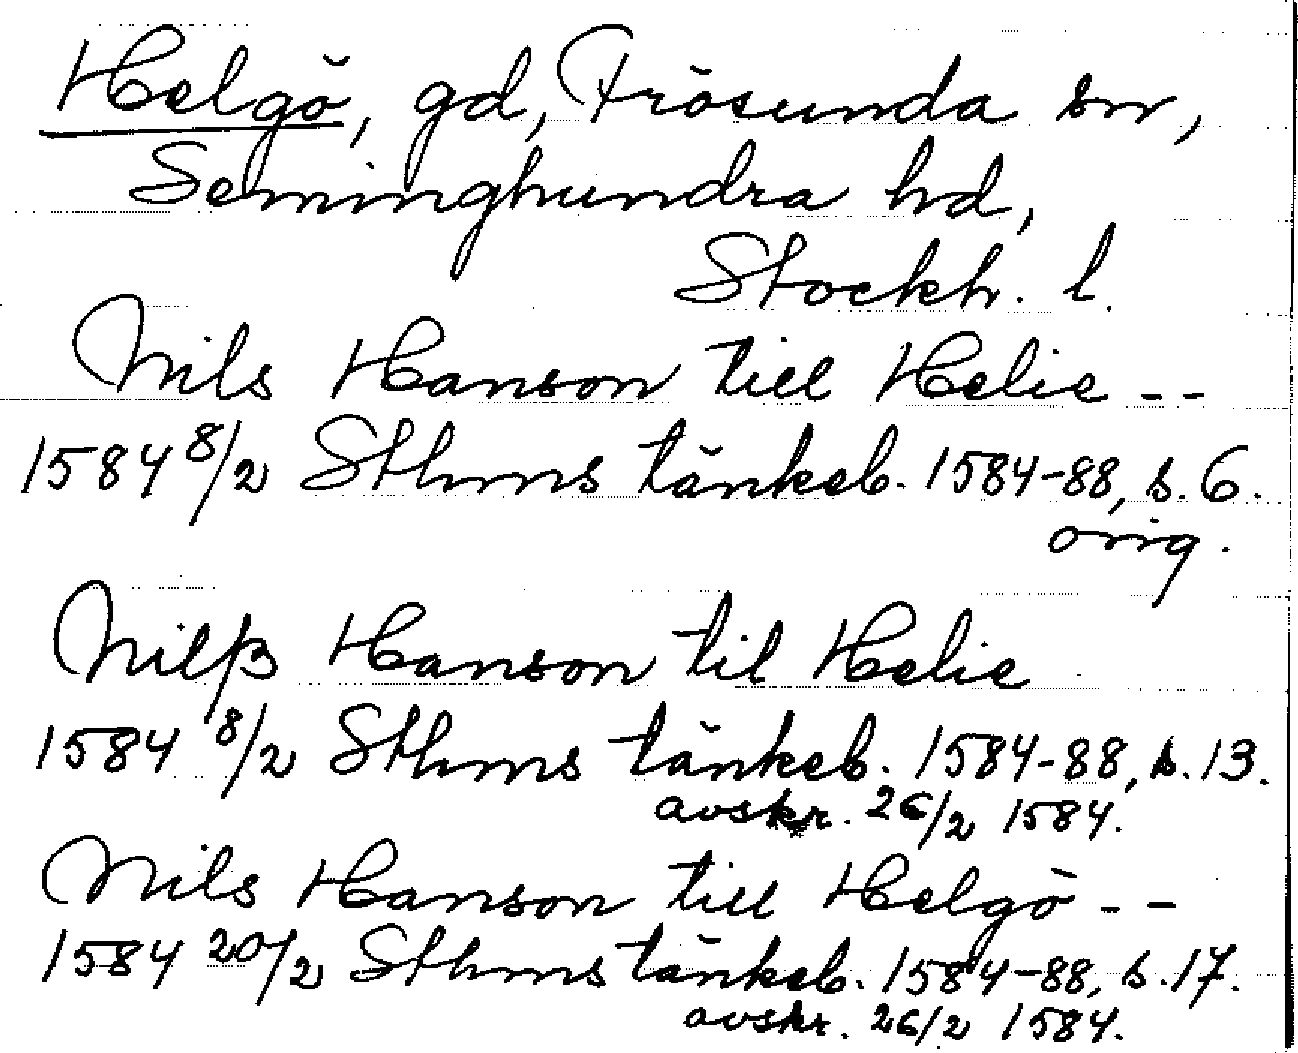 Helgö, gd, Frösunda sn,
Seminghundra hd,
Stockh. l.
Nils Hanson till Helie --
1584 8/2 Sthms tänkeb. 1584-88, s. 6.
orig.
Nilß Hanson til Helie
1584 8/2 Sthms tänkeb. 1584-88, s. 13.
avskr. 26/2 1584.
Nils Hanson till Helgö --
1584 20/2 Sthms tänkeb. 1584-88, s. 17.
avskr. 26/2 1584.